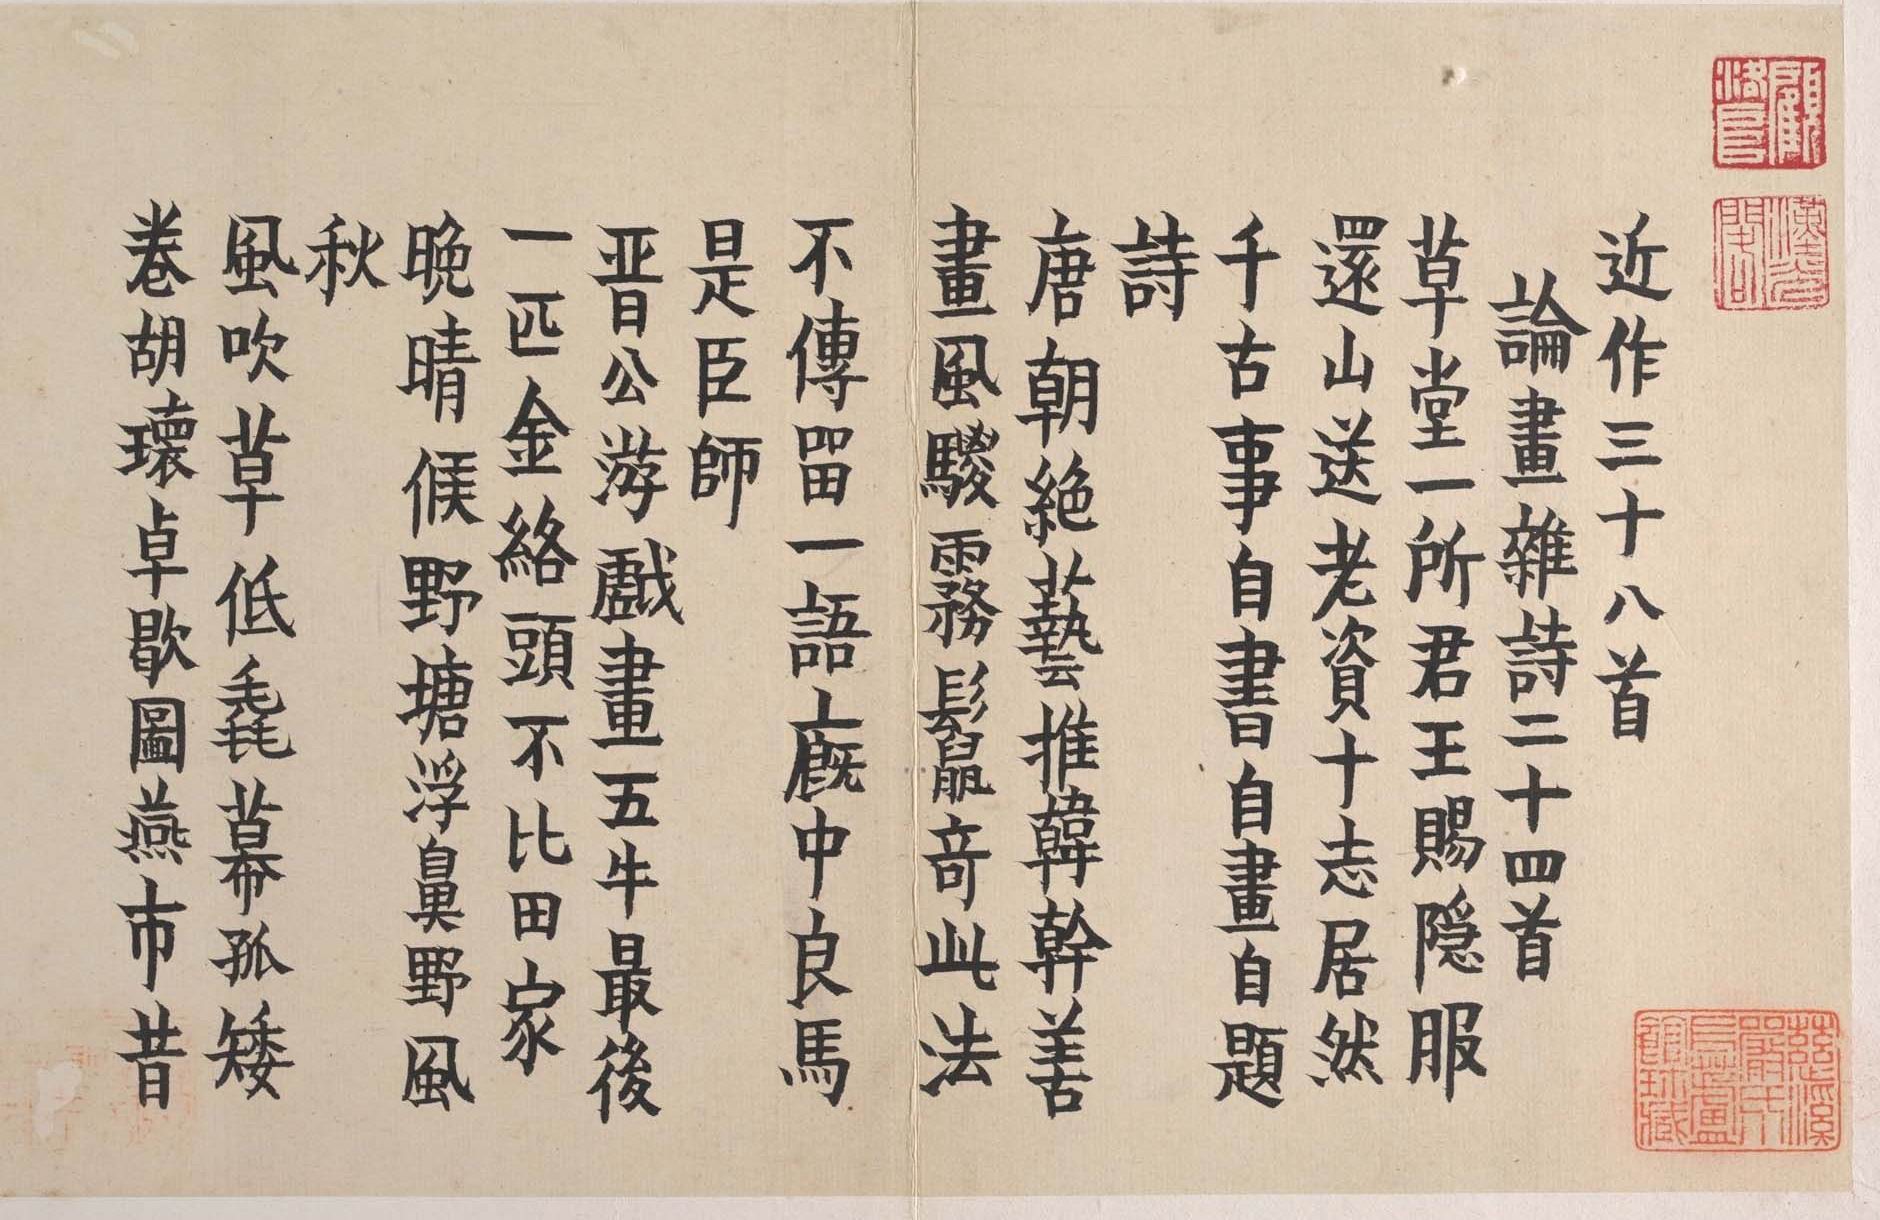 近作三十八首
論畫雜詩二十四首
草堂一所君王賜隱服
還山送老資十志居然
千古事自書自畫自題
詩
唐朝絶藝推韓幹善
畫風騣霧鬣奇此法
不傳留一語廄中良馬
是臣師
晋公游戲畫五牛最後
一匹金絡頭不比田家
晚晴候野塘浮鼻野風
秋
風吹草低毳幕孤矮
卷胡瓌卓歇圖燕市昔